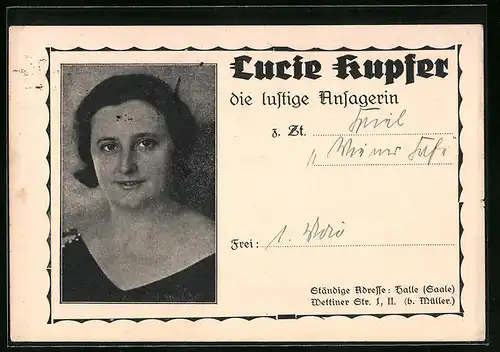 Lucie Kupfer
die lustige Ansagerin
z. Zt.
"Wiener Café
Frei: 1.
Ständige Adresse: Halle (Saale)
Wettiner Str. 1, II. (b. Müller.)